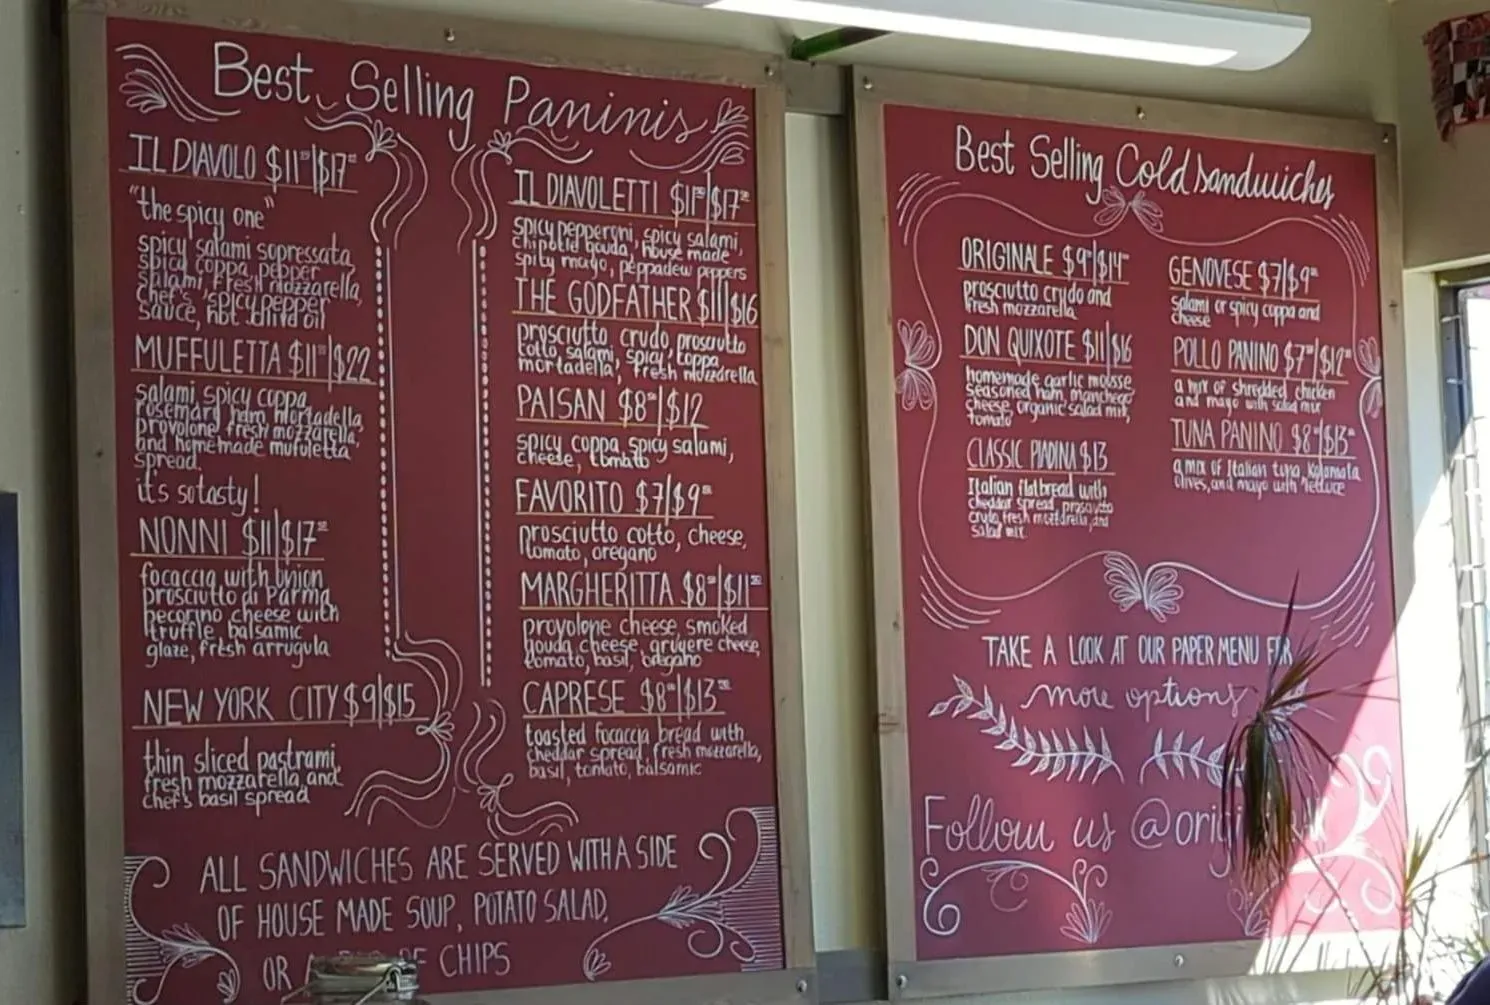 Best Selling Paninis
IL DIAVOLO $11⁵⁰|$17⁵⁰
"the spicy one"
spicy salami sopressata,
spicy coppa, pepper
salami, fresh mozzarella,
chef's spicy pepper
sauce, hot chird oil
MUFFULETTA $11⁵⁰|$22
salami, spicy coppa,
rosemary ham mortadella,
provolone, fresh mozzarella,
and homemade mufuletta
spread.
it's so tasty!
NONNI $11|$17⁵⁰
focaccia with onion
prosciutto di Parma
pecorino cheese with
truffle, balsamic
glaze, fresh arrugula
NEW YORK CITY $9|$15
thin sliced pastrami,
fresh mozzarella and
chef's basil spread
IL DIAVOLETTI $11⁵⁰|$17⁵⁰
spicy pepperoni, spicy salami,
chipotle gouda, house made
spity mayo, peppadew peppers
THE GODFATHER $11|$16
prosciutto crudo, prosciutto
cotto, salami, spicy coppa
mortadella, fresh mozzarella
PAISAN $8⁵⁰|$12
spicy coppa, spicy salami,
cheese, tomato
FAVORITO $7|$9⁵⁰
prosciutto cotto, cheese,
tomato, oregano
MARGHERITTA $8⁵⁰|$11⁵⁰
provolone cheese, smoked
gouda cheese, gruyere cheese,
tomato, basil, oregano
CAPRESE $8⁵⁰|$13⁵⁰
toasted focaccia bread with
cheddar spread, fresh mozzarella,
basil, tomato, balsamic
ALL SANDWICHES ARE SERVED WITH A SIDE
OF HOUSE MADE SOUP, POTATO SALAD,
OR A OF CHIPS
Best Selling Cold Sandwiches
ORIGINALE $9⁵⁰|$14⁵⁰
prosciutto crudo and
fresh mozzarella
DON QUIXOTE $11|$16
homemade garlic mousse,
seasoned ham, manchego
cheese, organic salad mix,
tomato
CLASSIC PIADINA $13
Italian flatbread with
cheddar spread, prosciutto
crudo, fresh mozzarella, and
salad mix.
GENOVESE $7|$9⁵⁰
salami or spicy coppa and
cheese
POLLO PANINO $7⁵⁰|$12⁵⁰
a mix of shredded chicken
and mayo with salad mix
TUNA PANINO $8⁵⁰|$13⁵⁰
a mix of Italian tuna, Kalamata
olives, and mayo with lettuce
TAKE A LOOK AT OUR PAPER MENU FOR
more options
Follow us @orig